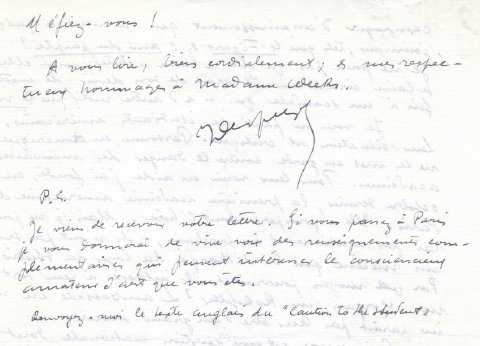 Méfiez-vous !
A vous lire, bien cordialement ; & mes respec-
tueux hommages à Madame Weeks.
P.S.
Je viens de recevoir votre lettre. Si vous passez à Paris
je vous donnerai de vive voix des renseignements com-
plémentaires qui peuvent intéresser le consciencieux
amateur d'art que vous êtes.
Renvoyez-moi le texte anglais du "Caution to the students